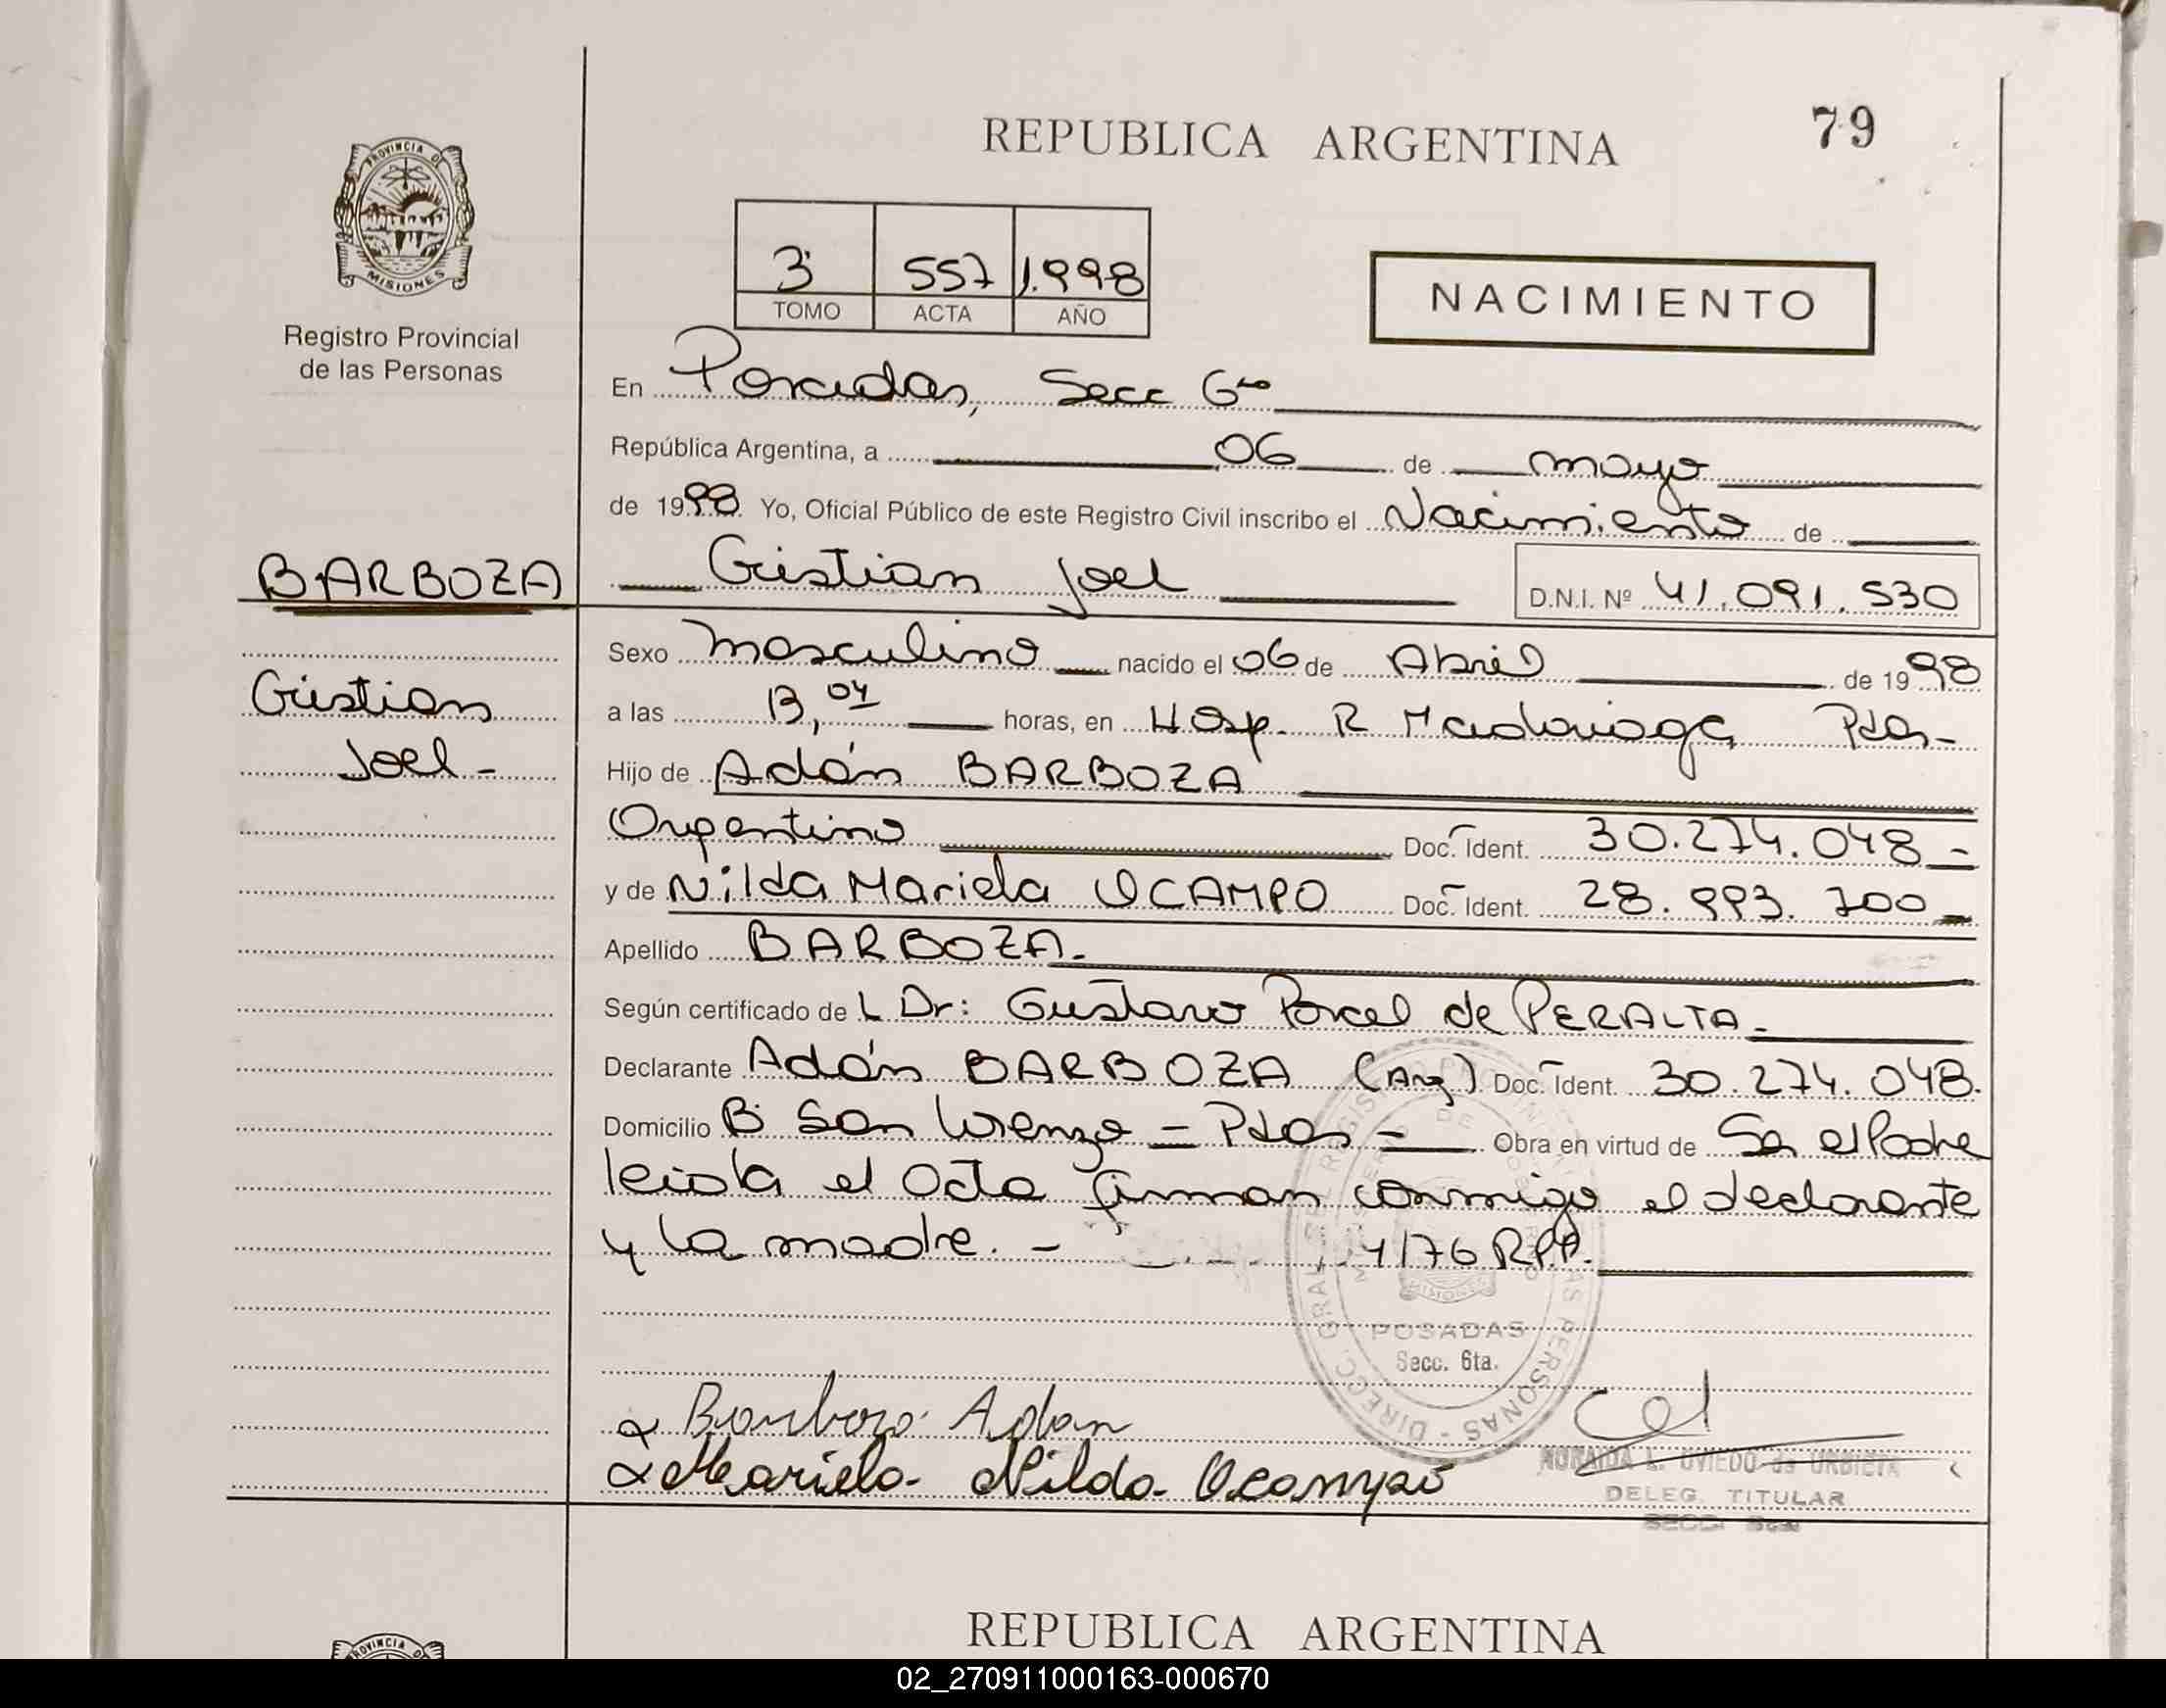 REPUBLICA ARGENTINA
79
PROVINCIA DE
MISIONES
Registro Provincial
de las Personas
3 557 1.998
TOMO ACTA AÑO
NACIMIENTO
En Posadas, Secc 6ta
República Argentina, a 06 de mayo
de 1998 Yo, Oficial Público de este Registro Civil inscribo el Nacimiento de
BARBOZA
Cristian Joel
D.N.I. Nº 41.091.530
Sexo masculino nacido el 06 de Abril de 1998
Cristian
Joel -
a las 13,04 horas, en Hosp. R Madariaga, Pdas-
Hijo de Adán BARBOZA
Argentino Doc. Ident. 30.274.048-
y de Nilda Mariela OCAMPO Doc. Ident. 28.993.700-
Apellido BARBOZA.
Según certificado de L Dr: Gustavo Porcel de PERALTA-
Declarante Adán BARBOZA (Arg) Doc. Ident. 30.274.048.
Domicilio Bº San Lorenzo - Pdas - Obra en virtud de Ser el Padre
leida el Acta firman conmigo el declarante
y la madre. - 4176 RPP.
POSADAS
Secc. 6ta.
Barboza Adan
Mariela Nilda Ocampo
L. OVIEDO de URBIETA
DELEG. TITULAR
REPUBLICA ARGENTINA
PROVINCIA
02_270911000163-000670